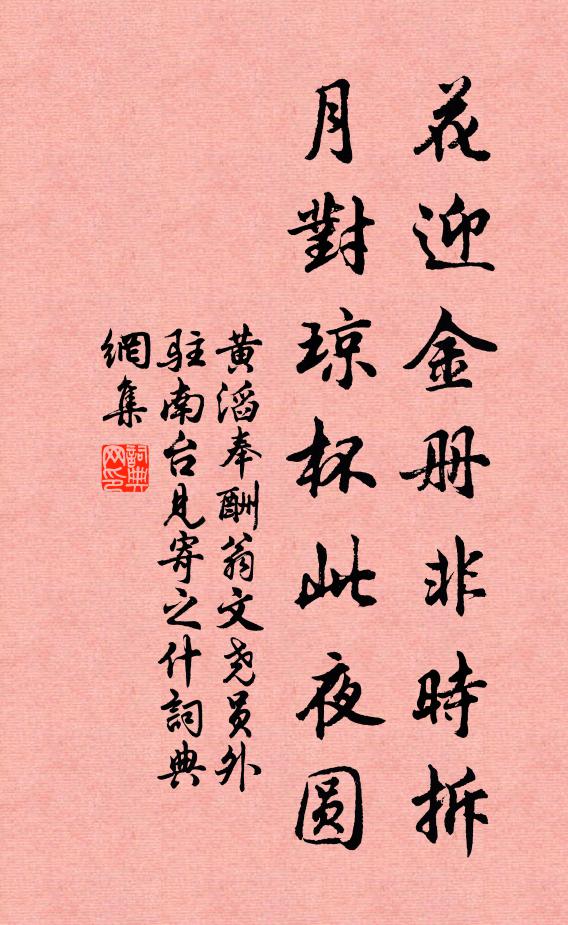 花迎金册非時拆
月對琼杯此夜圆
黄滔奉酬翁文尧员外
駐南台見寄之什詞典
網集
詞典网印